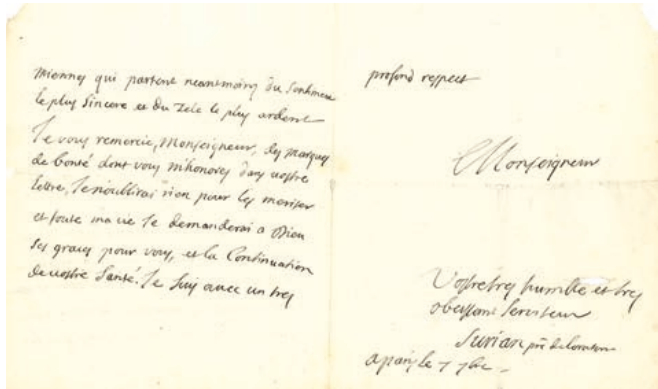 miennes qui partent neantmoins du sentiment
le plus sincere et du zele le plus ardent
Je vous remercie, Monseigneur, des marques
de bonté dont vous m'honorés dans vostre
lettre, Je n'oublirai rien pour les meriter
et toute ma vie Je demanderai a Dieu
ses graces pour vous, et la Continuation
de vostre Santé. Je suis avec un tres
profond respect
Monseigneur
Vostre tres humble et tres
obeissant serviteur
Surian
a paris le 7 7bre